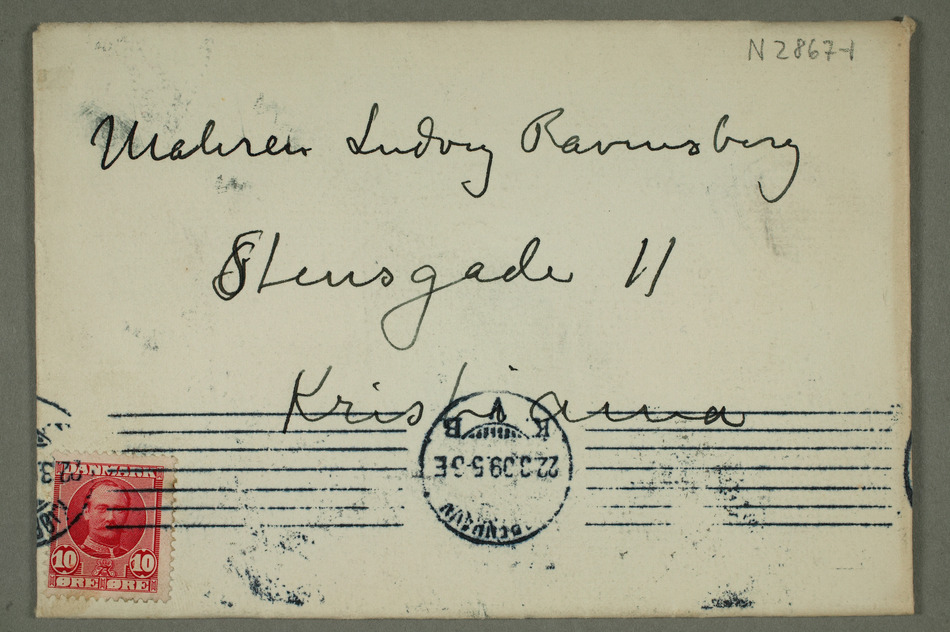 N 2867-1
Maleren Ludvig Ravensberg
Stensgade 11
Kristiania
K B
22.3.09.5-6E
DANMARK
10 10
ØRE ØRE